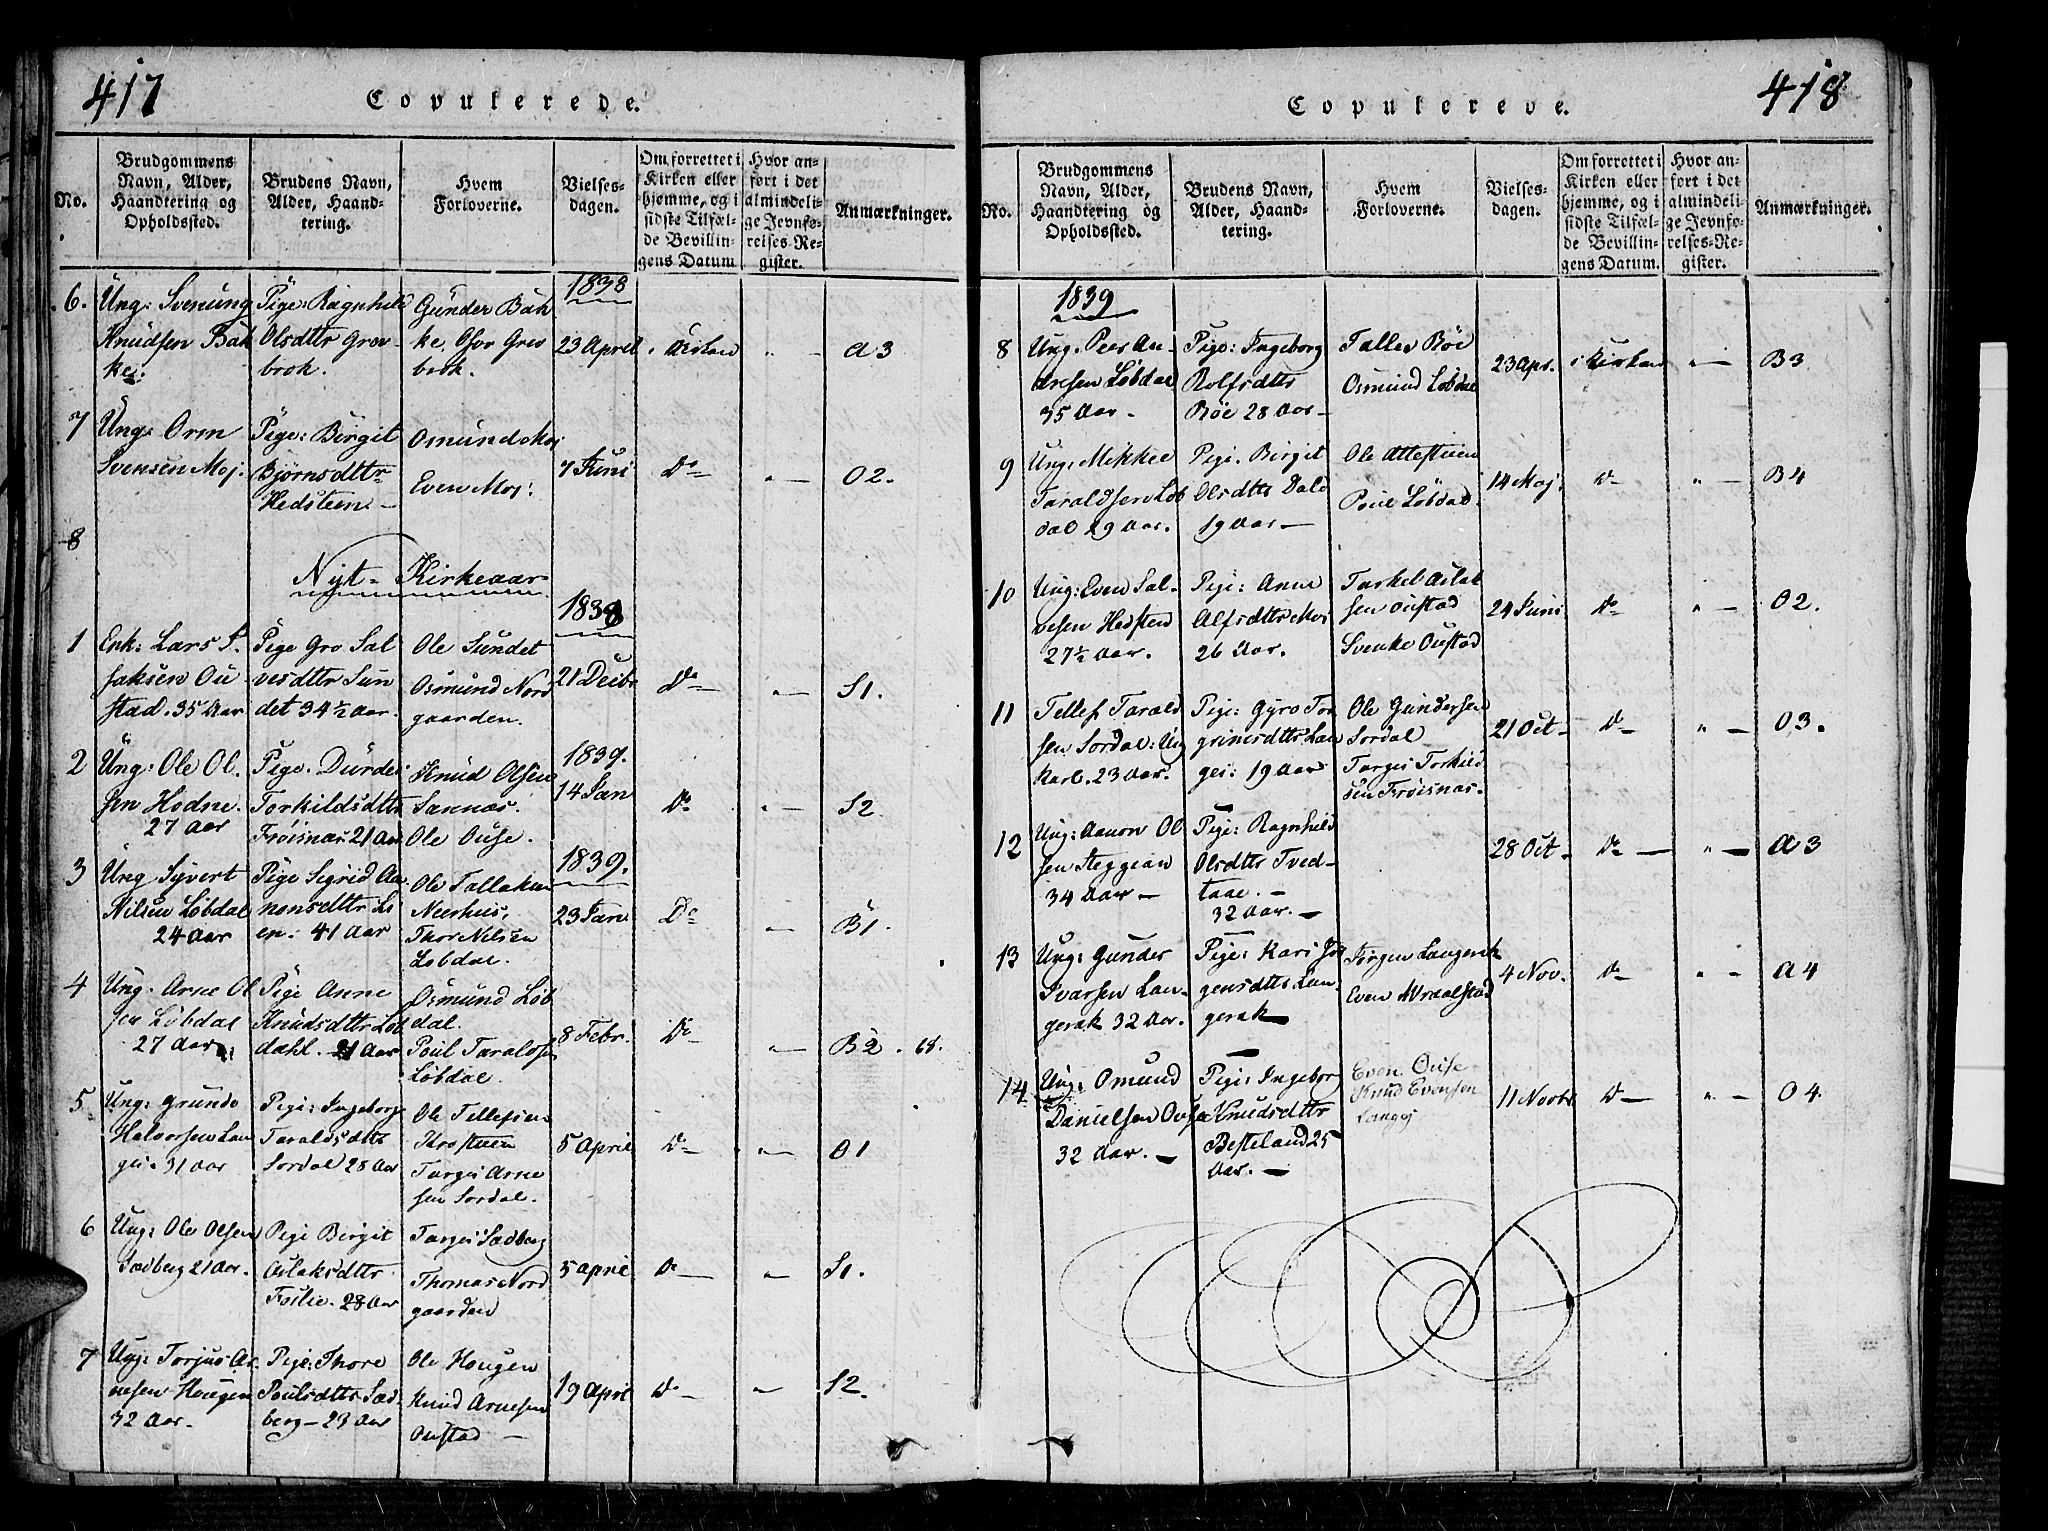 417
Copulerede.
No.
Brudgommens
Navn, Alder,
Haandtering og
Opholdssted.
Brudens Navn,
Alder, Haand-
tering.
Hvem
Forloverne.
Vielses-
dagen.
Om forrettet i
Kirken eller
hjemme, og i
sidste Tilfæl-
de Bevillin-
gens Datum
Hvor an-
ført i det
almindeli-
ge Jevnfø-
relses-Re-
gister.
Anmærkninger.
1838
6.
Ung: Svenung
Knudsen Bak
ke:
Pige: Ragnhild
Olsdttr Grov-
brok.
Gunder Bak
ke, Osov Grov
brok.
23 April
i Kirken
" —
A 3
7
Ung: Orm
Svensen Moj.
Pige: Birgit
Bjørnsdttr
Hedsteen. —
Osmund Moj
Even Moj:
7 Juni
Do
" —
O 2.
8
Nÿt Kirkeaar
1838
1
Enk: Lars I.
saksen Ou
stad. 35 Aar
Pige Gro Sal
vesdttr Sun
det 34½ Aar.
Ole Sundet
Osmund Nord
gaarden.
21 Decbr
Do
" —
S 1.
2
Ung: Ole Ol.
sen Hodne.
27 Aar
Pige. Durdei
Torkildsdttr
Frøisnæs 21 Aar
Knud Olsen
Sannæs.
Ole Ouse.
1839.
14 Jan
Do
" —
S 2
3
Ung Syvert
Nilsen Løbdal
24 Aar
Pige Sigrid Aa
nonsdttr Li
en: 41 Aar
Ole Tallaksen
Neerhus,
Thor Nilsen
Løbdal.
1839.
23 Jan
Do
" —
B 1.
4
Ung. Arne Ol
sen Løbdal
27 Aar
Pige Anne
Knudsdttr Løb
dahl. 21 Aar
Osmund Løb
dal.
Poul Taraldsen
Løbdal.
8 Febr.
Do
" —
B 2. 68.
5
Ung: Grundo
Halvorsen Lan
gei. 31 Aar
Pige: Ingeborg
Taraldsdttr
Sordal 28 Aar
Ole Tellefsen
Throstuen
Targei Arne
sen Sordal.
5 April
Do
" —
O 1
6
Ung: Ole Olsen
Sædberg 21 Aar.
Pige Birgit
Aslaksdttr
Foslie. 28 Aar
Targei Sædberg
Thomas Nord
gaarden
5 April
Do
" —
S 1.
7
Ung: Torjus Ar.
nesen Hougen
32 Aar.
Pige: Thore
Poulsdttr Sæd
berg — 23 Aar
Ole Hougen
Knud Arnesen
Oustad —
19 April
Do
" —
S 2.
418
Copulerede.
No.
Brudgommens
Navn, Alder,
Haandtering og
Opholdssted.
Brudens Navn,
Alder, Haand-
tering.
Hvem
Forloverne.
Vielses-
dagen.
Om forrettet i
Kirken eller
hjemme, og i
sidste Tilfæl-
de Bevillin-
gens Datum.
Hvor an-
ført i det
almindeli-
ge Jevnfø-
relses-Re-
gister.
Anmærkninger.
1839
8
Ung. Peer An
dresen Løbdal
35 Aar -
Pige: Ingeborg
Rolfsdttr
Røe 28 Aar —
Tallev Røe
Osmund Løbdal
23 Apr.
i Kirken
" —
B 3
9
Ung: Mikkel
Taraldsen Løb
dal 29 Aar.
Pige. Birgit
Olsdttr Dale
19 Aar —
Ole Attestuen
Poul Løbdal.
14 Maj.
Do
" —
B 4
10
Ung: Even Sal-
vesen Hedsteen
27½ Aar.
Pige: Anne
Alfsdttr Moi
26 Aar.
Torkel Aslak
sen Oustad
Svenke Oustad
24 Juni
Do
" —
O 2.
11
Tellef Tarald
sen Sordal: Ung
karl. 23 Aar.
Pige: Gyro Tor
grimsdttr Lan
gei: 19 Aar
Ole Gundersen
Sordal
Targei Torkild
sen Frøisnæs.
21 Oct
Do
" —
O 3.
12
Ung: Aanon Ol
sen Steggian
34 Aar —
Pige: Ragnhild
Olsdttr Tved-
taae. —
32 Aar. —
28 Oct
Do —
" —
A 3
13
Ung: Gunder
Ivarsen Lan-
gerak 32 Aar.
Pige: Kari Jør
gensdttr Lan
gerak
Jørgen Langerak
Even Urdalstad
4 Nov.
Do
" —
A 4
14
Ung: Omund
Danielsen Ouse
32 Aar. —
Pige: Ingeborg
Knudsdttr
Besteland 25
Aar. —
Even Ouse
Knud Evensen
Langej
11 Novbr
Do
" —
O 4.